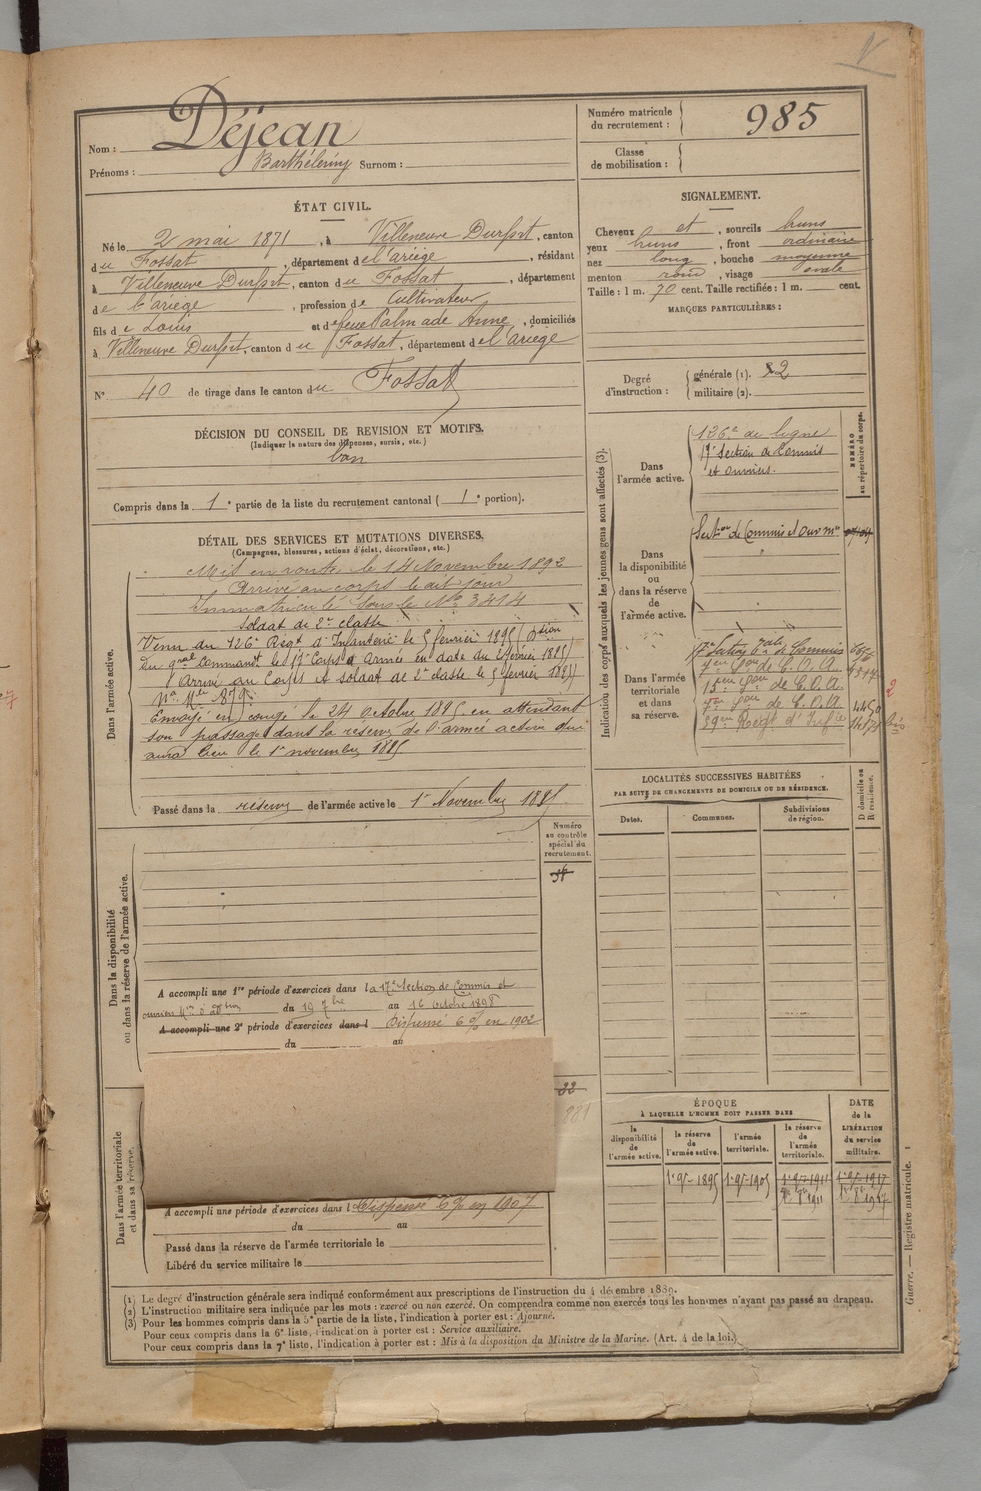 Nom : Déjean
Prénoms : Barthélemy Surnom :
Numéro matricule du recrutement : 985
Classe de mobilisation :
ÉTAT CIVIL.
Né le 2 mai 1871, à Villeneuve Durfort, canton
du Fossat, département de l'ariège, résidant
à Villeneuve Durfort, canton du Fossat, département
de l'ariège, profession de Cultivateur
fils de Louis et de feue Palmade Anne, domiciliés
à Villeneuve Durfort, canton du Fossat, département de l'ariège
N° 40 de tirage dans le canton du Fossat
SIGNALEMENT.
Cheveux et, sourcils bruns
yeux bruns, front ordinaire
nez long, bouche moyenne
menton rond, visage ovale
Taille : 1 m. 70 cent. Taille rectifiée : 1 m. cent.
MARQUES PARTICULIÈRES :
Degré d'instruction : générale (1). 2
militaire (2).
DÉCISION DU CONSEIL DE REVISION ET MOTIFS.
(Indiquer la nature des dispenses, sursis, etc.)
bon
Compris dans la 1e partie de la liste du recrutement cantonal (1e portion).
DÉTAIL DES SERVICES ET MUTATIONS DIVERSES.
(Campagnes, blessures, actions d'éclat, décorations, etc.)
Dans l'armée active.
Mis en route le 14 Novembre 1892
Arrivé au corps le dit jour
Immatriculé sous le No 3414
Soldat de 2e classe
Venu du 126e Régt d'Infanterie le 5 février 1895
du gral Commandt le 17e Corps d'Armée en date du février 1895
Arrivé au Corps et Soldat de 2e classe le 5 février 1895
No Mle 879
Envoyé en congé le 24 octobre 1895 en attendant
son passage dans la réserve de l'armée active qui
aura lieu le 1er novembre 1895
Passé dans la réserve de l'armée active le 1er Novembre 1895
Indication des corps auxquels les jeunes gens sont affectés (3).
NUMÉRO au répertoire du corps.
Dans l'armée active.
126e de ligne
17e Section de Commis
et ouvriers.
Dans la disponibilité ou dans la réserve de l'armée active.
Section de Commis et Ouv
Dans l'armée territoriale et dans sa réserve.
de C.O.A.
15em de C.O.A.
de C.O.A. 4450
Régt d'Infie
2
LOCALITÉS SUCCESSIVES HABITÉES
PAR SUITE DE CHANGEMENTS DE DOMICILE OU DE RÉSIDENCE.
Dates. Communes. Subdivisions de région. D domicile ou R résidence.
Numéro au contrôle spécial du recrutement.
Dans la disponibilité ou dans la réserve de l'armée active.
A accompli une 1re période d'exercices dans la 17e Section de Commis et
ouvriers Mres d'adon du 19 7bre au 16 octobre 1898
A accompli une 2e période d'exercices dans l Dispensé 6 % en 1902
du au
32
881
Dans l'armée territoriale et dans sa réserve.
A accompli une période d'exercices dans l Dispensé 6 % en 1907
du au
Passé dans la réserve de l'armée territoriale le
Libéré du service militaire le
ÉPOQUE
À LAQUELLE L'HOMME DOIT PASSER DANS
la disponibilité de l'armée active. la réserve de l'armée active. l'armée territoriale. la réserve de l'armée territoriale. DATE de la LIBÉRATION du service militaire.
1er 9bre 1895 1er 9bre 1905 1er 9bre 1911 1er 9bre 1917
1er 8bre 1911 1er 8bre 1917
(1) Le degré d'instruction générale sera indiqué conformément aux prescriptions de l'instruction du 4 décembre 1889.
(2) L'instruction militaire sera indiquée par les mots : exercé ou non exercé. On comprendra comme non exercés tous les hommes n'ayant pas passé au drapeau.
(3) Pour les hommes compris dans la 5e partie de la liste, l'indication à porter est : Ajourné.
Pour ceux compris dans la 6e liste, l'indication à porter est : Service auxiliaire.
Pour ceux compris dans la 7e liste, l'indication à porter est : Mis à la disposition du Ministre de la Marine. (Art. 4 de la loi.)
Guerre. — Registre matricule. 1